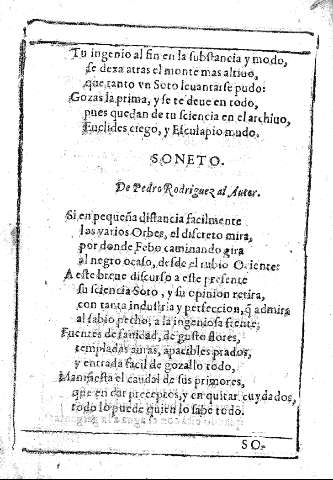 Tu ingenio al fin en la substancia y modo,
se dexa atras el monte mas altiuo,
que tanto vn Soto leuantarse pudo:
Gozas la prima, y se te deue en todo,
pues quedan de tu sciencia en el archiuo,
Euclides ciego, y Esculapio mudo.
SONETO.
De Pedro Rodriguez al Autor.
Si en pequeña distancia facilmente
los varios Orbes, el discreto mira,
por donde Febo caminando gira
al negro ocaso, desde el rubio Oriente:
A este breue discurso a este presente
su sciencia Soto, y su opinion retira,
con tanta industria y perfeccion, q̃ admira
al sabio pecho, a la ingeniosa frente;
Fuentes de sanidad, de gusto flores,
templadas auras, apacibles prados,
y entrada facil de gozallo todo,
Manifiesta el caudal de sus primores,
que en dar preceptos, y en quitar cuydados,
todo lo puede quien lo sabe todo.
SO-